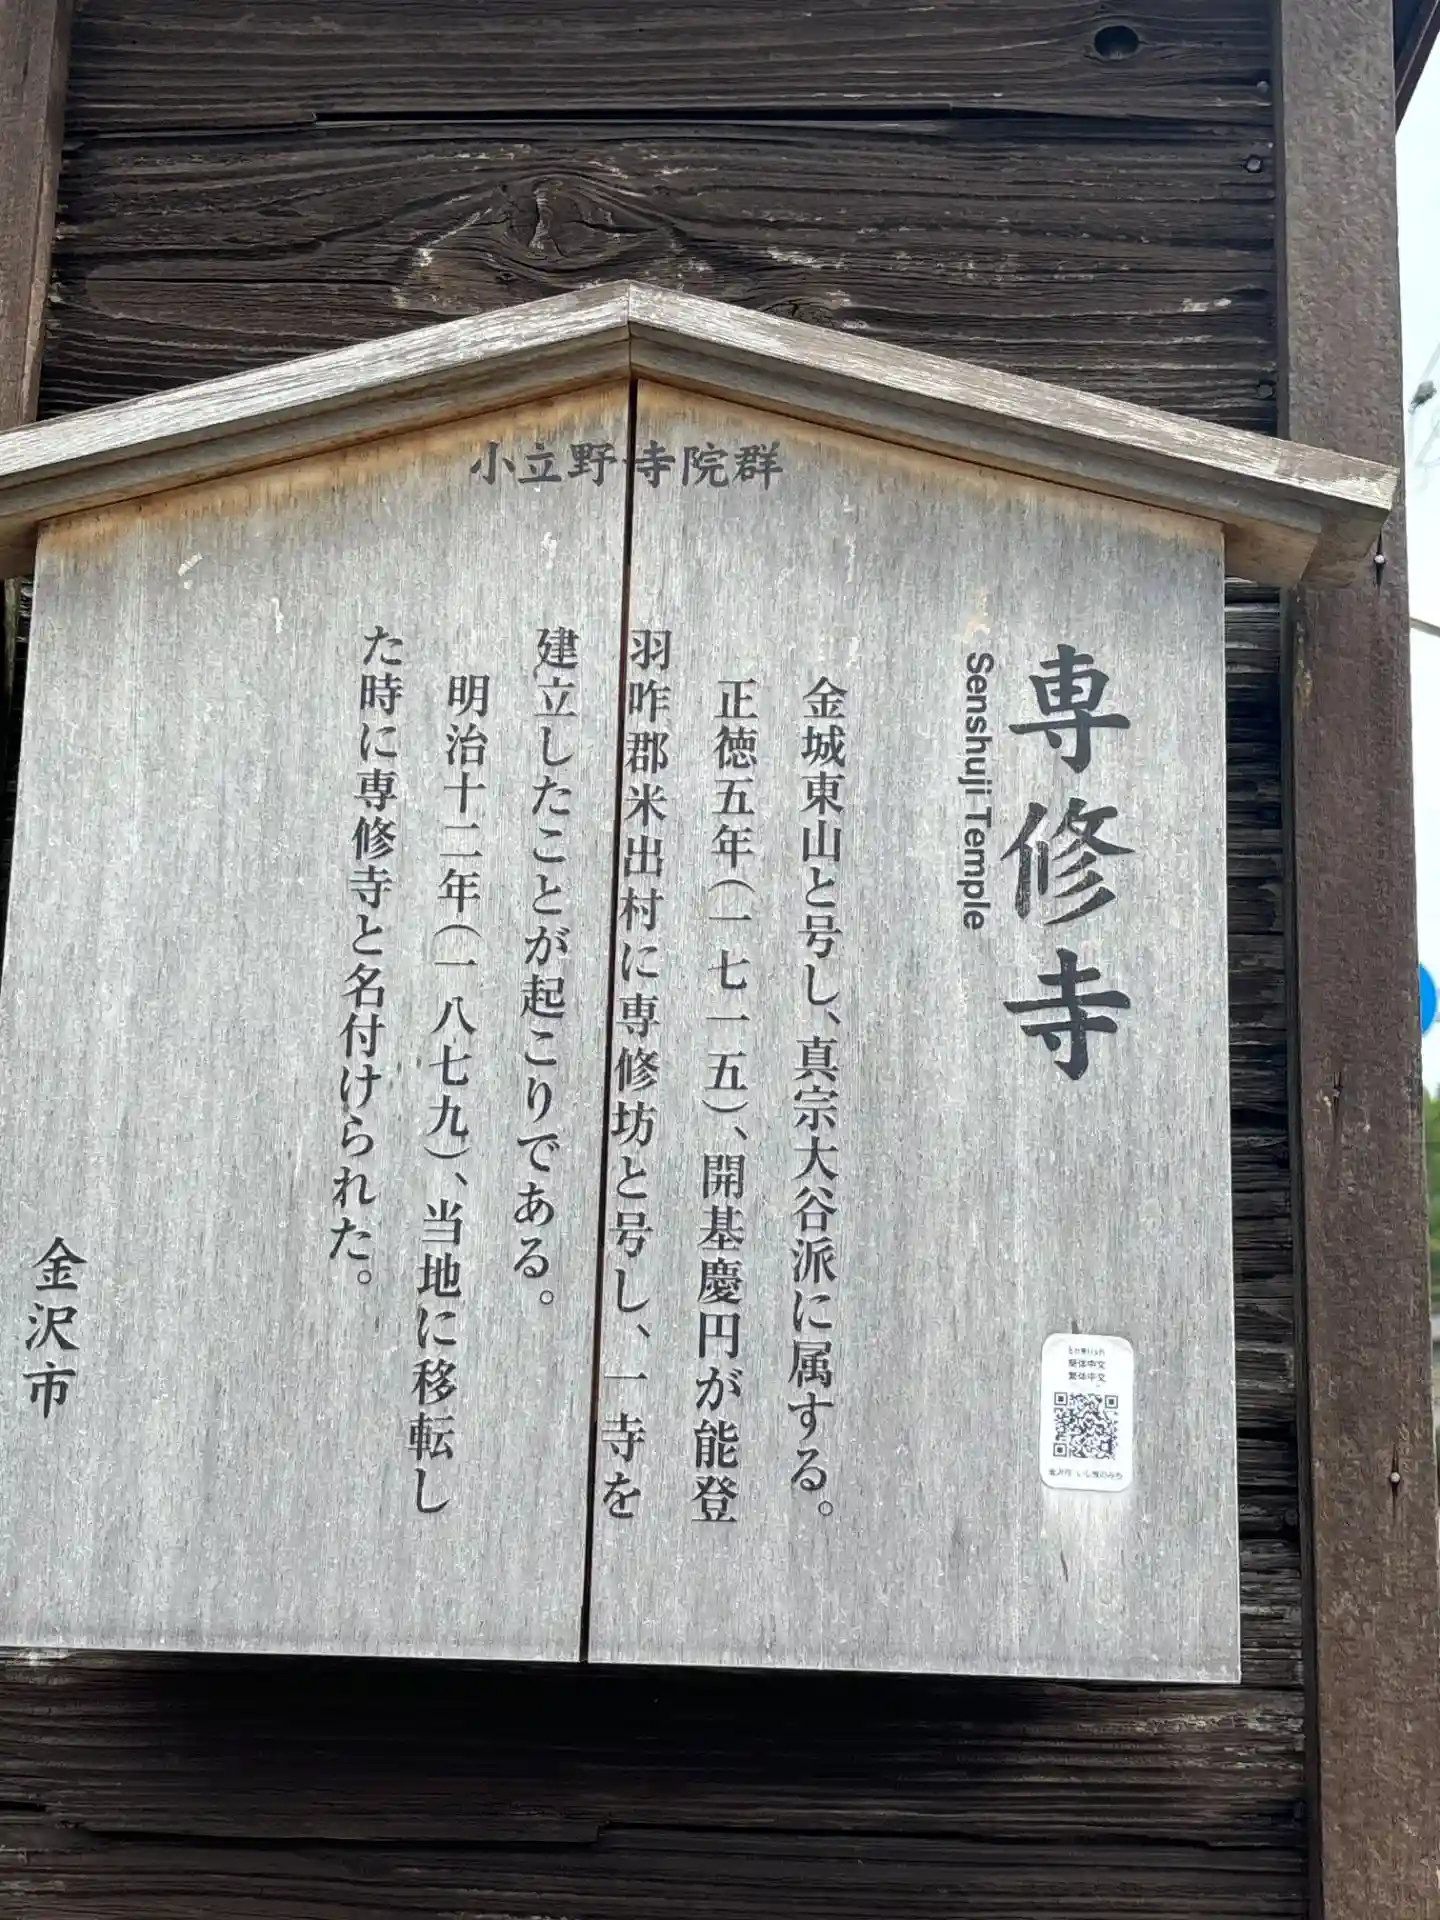 小立野寺院群
専修寺
Senshuji Temple
金城東山と号し、真宗大谷派に属する。
正徳五年(一七一五)、開基慶円が能登
羽咋郡米出村に専修坊と号し、一寺を
建立したことが起こりである。
明治十二年(一八七九)、当地に移転し
た時に専修寺と名付けられた。
金沢市
English
简体中文
繁体中文
金沢市 いし曳のみち